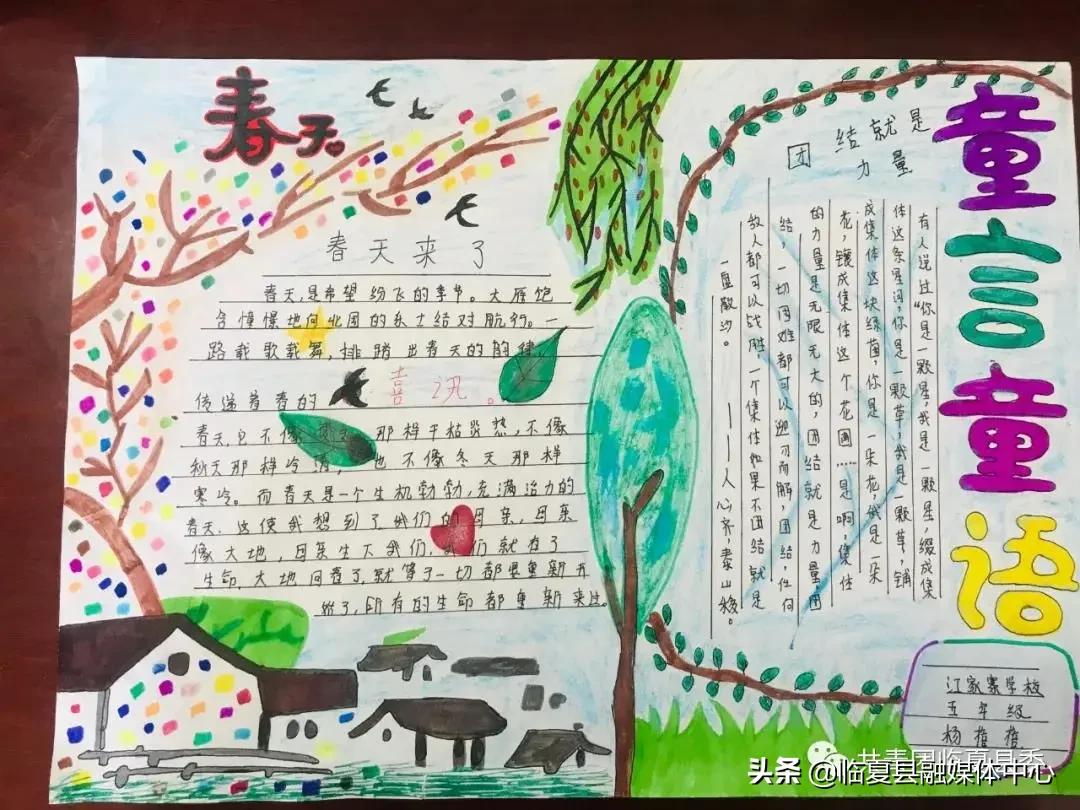 春天。
春天来了
春天,是希望纷飞的季节。大雁饱
含憧憬地向北国的乐土结对航行。一
路载歌载舞,排踏出春天的韵律,
传递着春的喜讯。
春天,它不像夏天那样干枯炎热,不像
秋天那样冷清,也不像冬天那样
寒冷。而春天是一个生机勃勃,充满活力的
春天,这使我想到了我们的母亲,母亲
像大地,母亲生下我们,我们就有了
生命,大地回春了,就等于一切都要重新开
始了,所有的生命都重新来过。
童言童语
团结就是
力量
有人说过“你是一颗星,我是一颗星,缀成集
体这条星河,你是一颗草,我是一颗草,铺
成集体这块绿茵,你是一朵花,我是一朵
花,镶成集体这个花园……是啊,集体
的力量是无限无大的,团结就是力量,团
结,一切困难都可以迎刃而解,团结,任何
敌人都可以战胜,一个集体如果不团结就是
一盘散沙。——人心齐,泰山移。
江家寨学校
五年级
杨蓓蓓
共青团临夏县委
头条 @临夏县融媒体中心